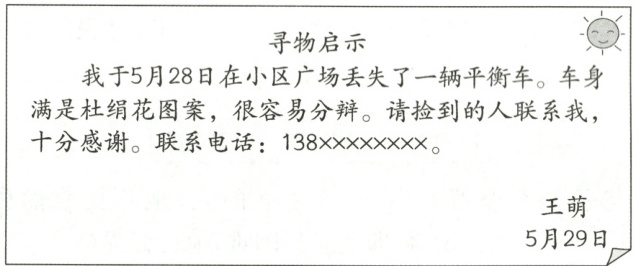 寻物启示
我于5月28日在小区广场丢失了一辆平衡车。车身
满是杜绢花图案，很容易分辩。请捡到的人联系我，
十分感谢。联系电话：138××××××××。
王萌
5月29日